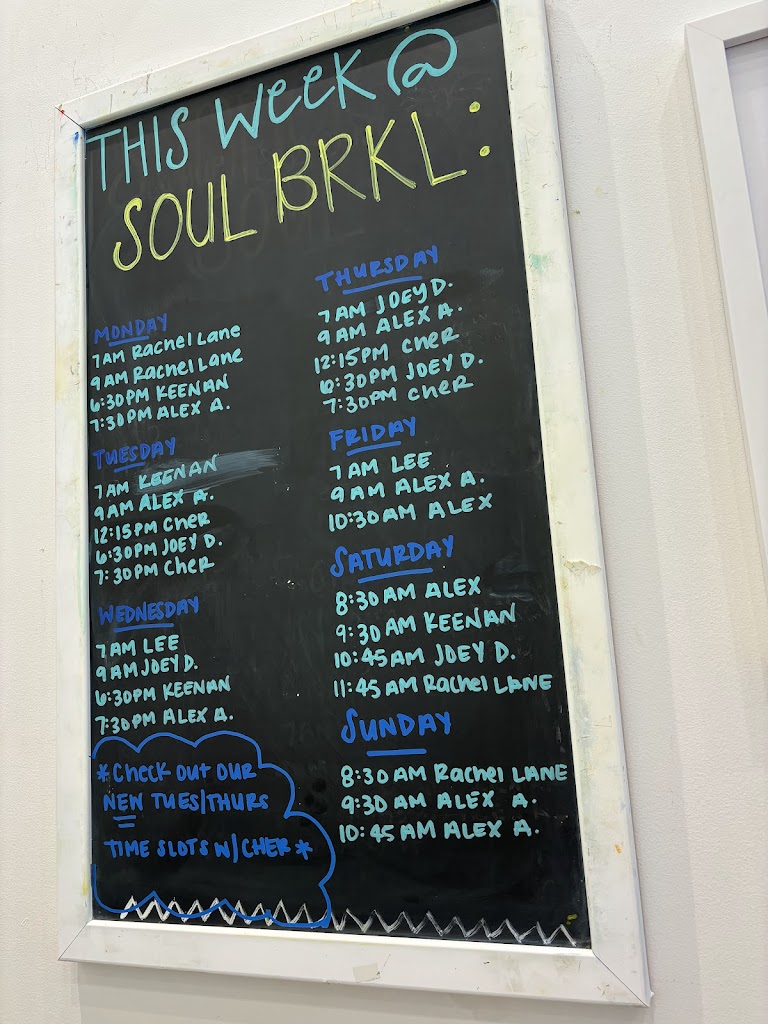 THIS WEEK @
SOUL BRKL:
MONDAY
7AM Rachel Lane
9AM Rachel Lane
6:30PM KEENAN
7:30PM ALEX A.
TUESDAY
7AM KEENAN
9AM ALEX A.
12:15PM CHER
6:30PM JOEY D.
7:30PM CHER
WEDNESDAY
7AM LEE
9AM JOEY D.
6:30PM KEENAN
7:30PM ALEX A.
*Check out our
NEW TUES/THURS
TIME SLOTS W/CHER*
THURSDAY
7AM JOEY D.
9AM ALEX A.
12:15PM CHER
6:30PM JOEY D.
7:30PM CHER
FRIDAY
7AM LEE
9AM ALEX A.
10:30AM ALEX
SATURDAY
8:30AM ALEX
9:30AM KEENAN
10:45AM JOEY D.
11:45AM Rachel LANE
SUNDAY
8:30AM Rachel LANE
9:30AM ALEX A.
10:45AM ALEX A.